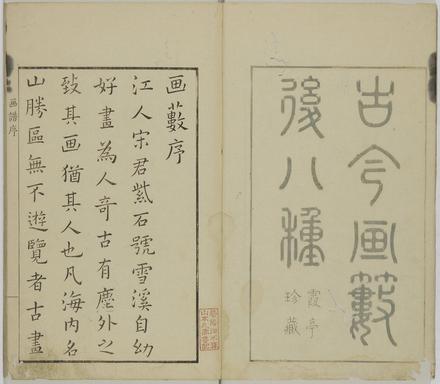 古今画藪
後八種
霞亭
珍藏
画藪序
江人宋君紫石號雪溪自幼
好畫為人奇古有塵外之
致其画猶其人也凡海内名
山勝區無不遊覽者古畫
画譜序